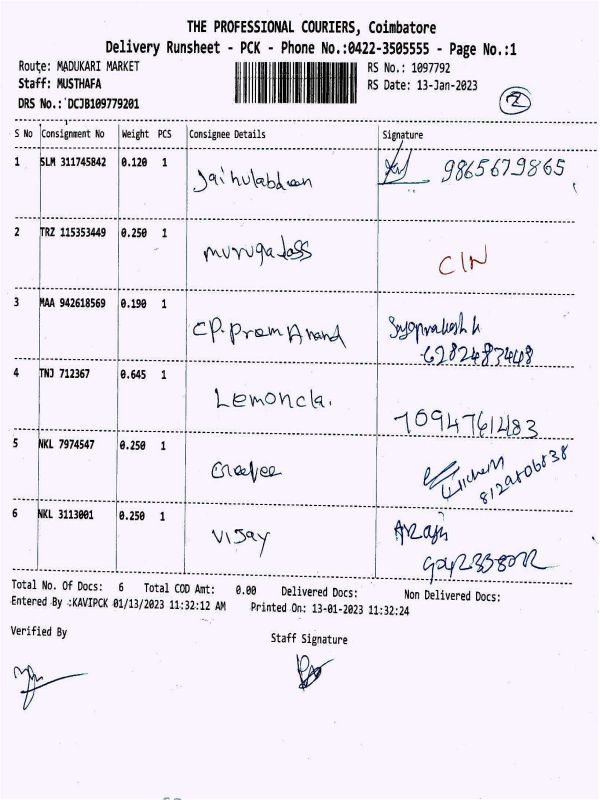 THE PROFESSIONAL COURIERS, Coimbatore
Delivery Runsheet - PCK - Phone No.:0422-3505555 - Page No.:1
Route: MADUKARI MARKET
RS No.: 1097792
Staff: MUSTHAFA
RS Date: 13-Jan-2023
DRS No.: DCJB109779201
2
S No Consignment No Weight PCS Consignee Details Signature
1 SLM 311745842 0.120 1 Jainulabdeen 9865679865
2 TRZ 115353449 0.250 1 murugadass CIN
3 MAA 942618569 0.190 1 CP. Prem Anand
6282483408
4 TNJ 712367 0.645 1 Lemoncla. 7094761483
5 NKL 7974547 0.250 1
8129806838
6 NKL 3113001 0.250 1 Vijay
Total No. Of Docs: 6 Total COD Amt: 0.00 Delivered Docs: Non Delivered Docs:
Entered By :KAVIPCK 01/13/2023 11:32:12 AM Printed On: 13-01-2023 11:32:24
Verified By
Staff Signature